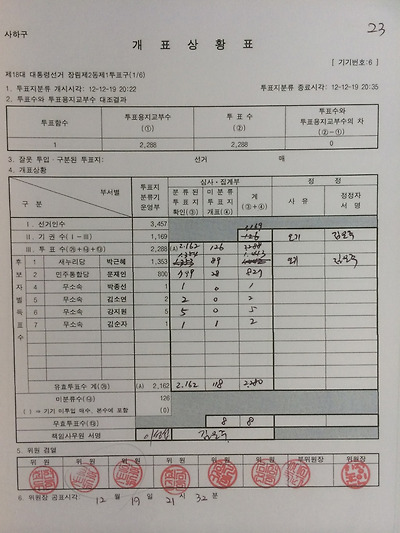 사하구
23
개 표 상 황 표
[ 기기번호:6 ]
제18대 대통령선거 장림제2동제1투표구(1/6)
1. 투표지분류 개시시각: 12-12-19 20:22 투표지분류 종료시각: 12-12-19 20:35
2. 투표수와 투표용지교부수 대조결과
투표함수 투표용지교부수 (①) 투 표 수 (②) 투표수와 투표용지교부수의 차 (②-①)
1 2,288 2,288 0
3. 잘못 투입·구분된 투표지: 선거 매
4. 개표상황
구 분 부서별 투표지분류기운영부 심사·집계부 정 정
분류된 투표지 확인(③) 미분류 투표지 개표(④) 계 (③+④) 사 유 정정자 서 명
Ⅰ. 선거인수 3,457
Ⅱ. 기 권 수 (Ⅰ-Ⅲ) 1,169 1169 126 오기
Ⅲ. 투 표 수 2,288 (A) 2,162 126 2288
후보자별득표수
1 새누리당 박근혜 1,353 1354 89 1,443 오기
2 민주통합당 문재인 800 799 28 827
4 무소속 박종선 1 1 0 1
5 무소속 김소연 2 2 0 2
6 무소속 강지원 5 5 0 5
7 무소속 김순자 1 1 1 2
유효투표수 계 (A) 2,162 2,162 118 2,280
미분류수 126
( ) ⇒ 기기 미투입 매수, 본수에 포함 (0)
무효투표수 8 8
책임사무원 서명
5. 위원 검열
위 원 위 원 위 원 위 원 위 원 위 원 부위원장 위원장
6. 위원장 공표시각: 12 월 19 일 21 시 32 분